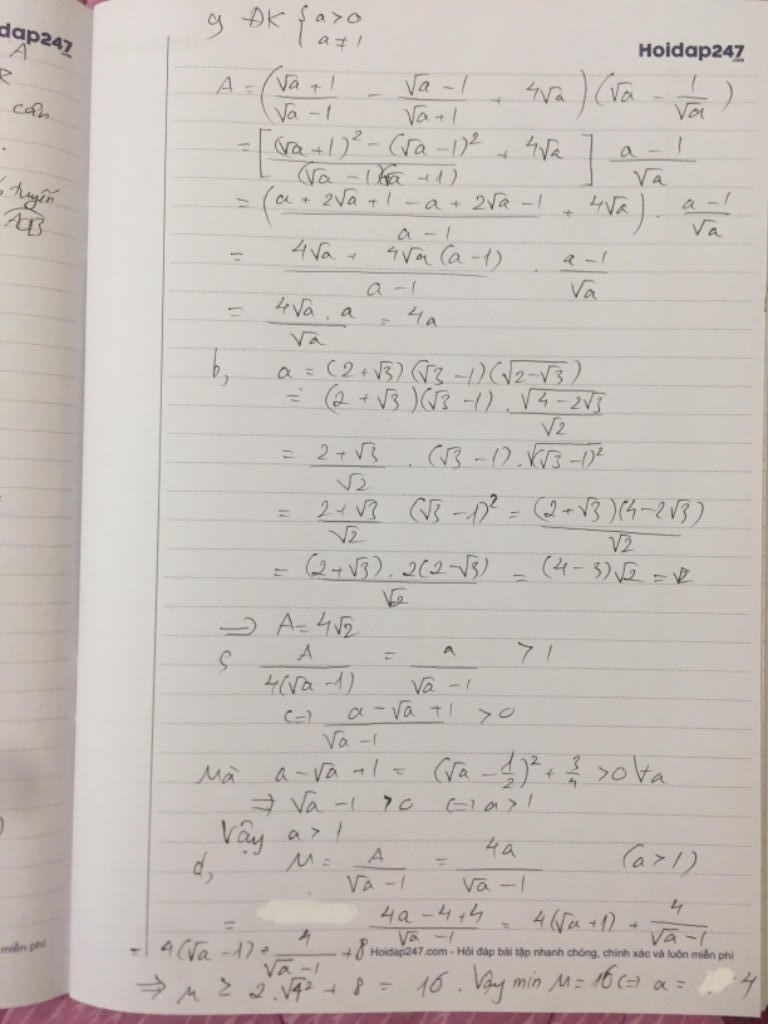 dap247
A
cân
tuyến
AOB
Hoidap247
.com
a, ĐK { a > 0
a ≠ 1
A = ( (√a + 1)/(√a - 1) - (√a - 1)/(√a + 1) + 4√a ) (√a - 1/√a)
= [ ((√a + 1)² - (√a - 1)²)/((√a - 1)(√a + 1)) + 4√a ] (a - 1)/√a
= ( (a + 2√a + 1 - a + 2√a - 1)/(a - 1) + 4√a ) . (a - 1)/√a
= (4√a + 4√a (a - 1))/(a - 1) . (a - 1)/√a
= (4√a . a)/√a = 4a
b, a = (2 + √3) (√3 - 1) (√(2 - √3))
= (2 + √3) (√3 - 1) . √(4 - 2√3)/√2
= (2 + √3)/√2 . (√3 - 1) . √((√3 - 1)²)
= (2 + √3)/√2 (√3 - 1)² = ((2 + √3)(4 - 2√3))/√2
= ((2 + √3) . 2(2 - √3))/√2 = (4 - 3)√2 = √2
=> A = 4√2
c, A/(4(√a - 1)) = a/(√a - 1) > 1
<=> (a - √a + 1)/(√a - 1) > 0
Mà a - √a + 1 = (√a - 1/2)² + 3/4 > 0 ∀a
=> √a - 1 > 0 <=> a > 1
Vậy a > 1
d, M = A/(√a - 1) = 4a/(√a - 1) (a > 1)
= (4a - 4 + 4)/(√a - 1) = 4(√a + 1) + 4/(√a - 1)
= 4(√a - 1) + 4/(√a - 1) + 8
miễn phí
Hoidap247.com - Hỏi đáp bài tập nhanh chóng, chính xác và luôn miễn phí
=> M ≥ 2.√4² + 8 = 16. Vậy min M = 16 <=> a = 4